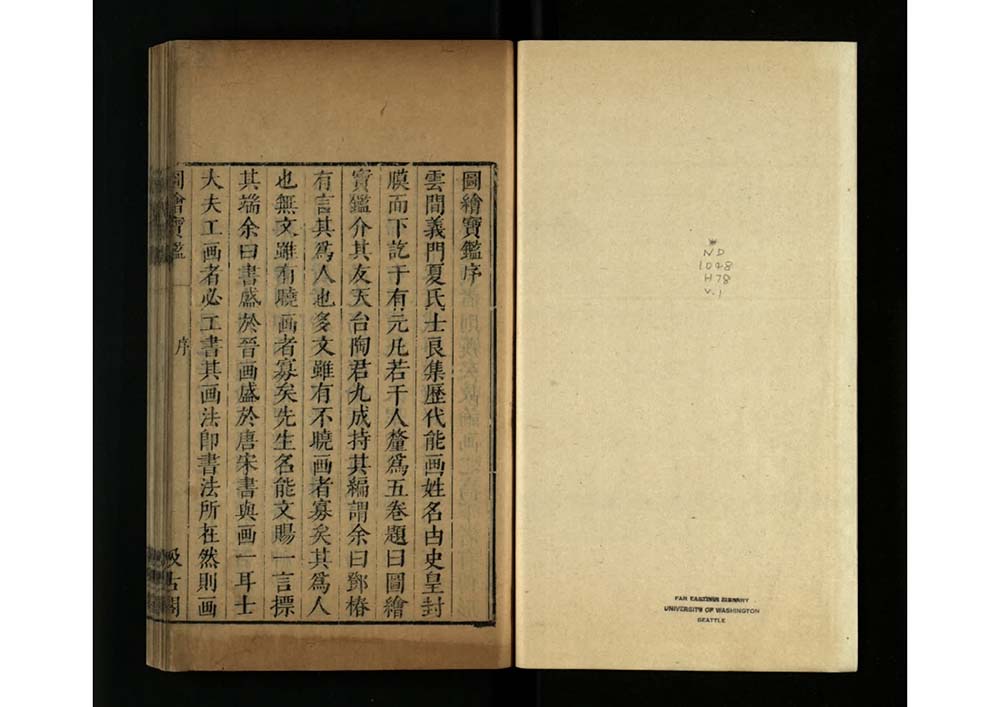 圖繪寶鑑序
雲間義門夏氏士良集歷代能画姓名由史皇封
膜而下訖于有元凡若干人釐爲五卷題曰圖繪
寶鑑介其友天台陶君九成持其編謂余曰鄧椿
有言其爲人也多文雖有不曉画者寡矣其爲人
也無文雖有曉画者寡矣先生名能文賜一言摽
其端余曰書盛於晉画盛於唐宋書與画一耳士
大夫工画者必工書其画法卽書法所在然則画
圖繪寶鑑
序
汲古閣
ND
1048
H78
v.1
FAR EASTERN LIBRARY
UNIVERSITY OF WASHINGTON
SEATTLE